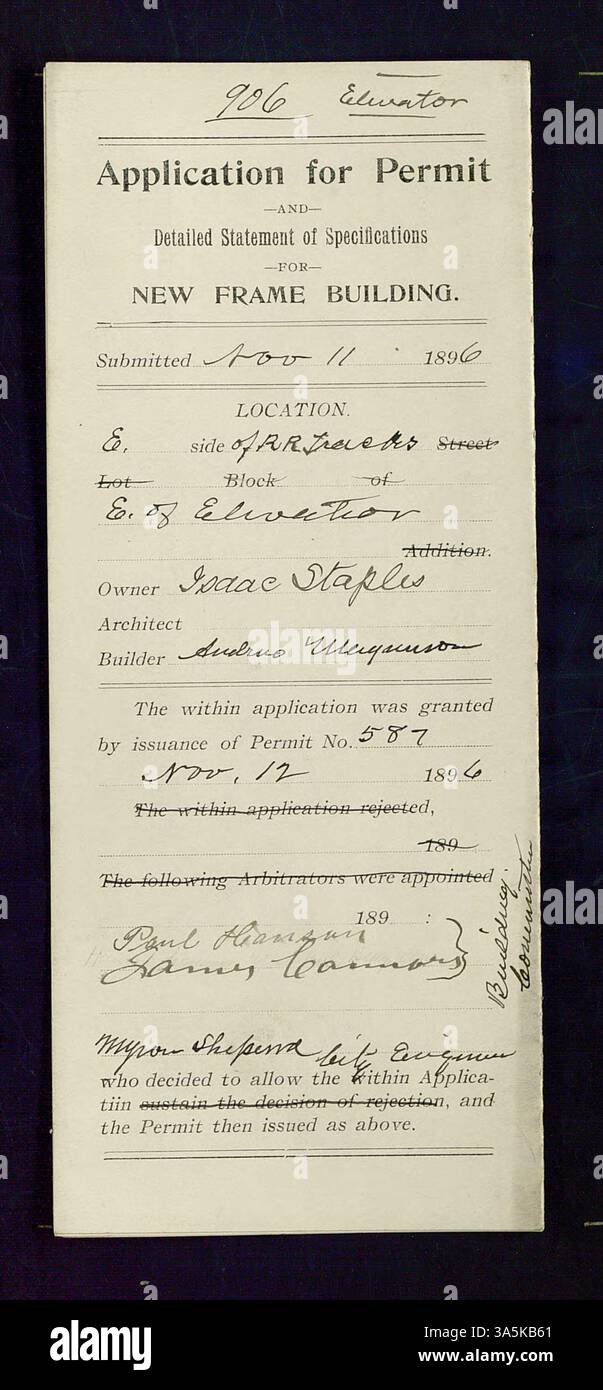 906 Elevator
Application for Permit
—AND—
Detailed Statement of Specifications
—FOR—
NEW FRAME BUILDING.
Submitted Nov 11 1896
LOCATION.
E. side of RR Tracks Street
Lot Block of
E. of Elevator
Addition.
Owner Isaac Staples
Architect
Builder Andrew Magnuson
The within application was granted
by issuance of Permit No. 587
Nov, 12 1896
The within application rejected,
189
The following Arbitrators were appointed
189 :
Paul Hanson
James Connors
Building Committee
Myron Sheperd City Engineer
who decided to allow the within Applica-
tiin sustain the decision of rejection, and
the Permit then issued as above.
alamy
alamy
Image ID: 3A5KB61
www.alamy.com